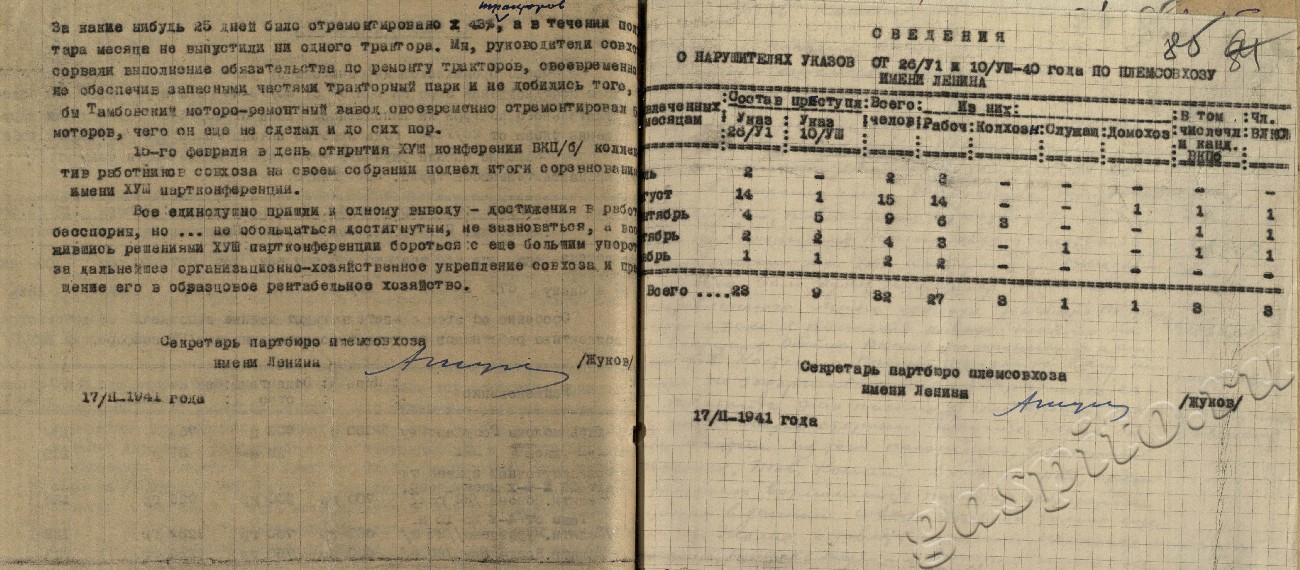 тракторов
За какие нибудь 25 дней было отремонтировано х 43%, а в течении пол
тара месяца не выпустили ни одного трактора. Мы, руководители совхо
сорвали выполнение обязательства по ремонту тракторов, своевременно
не обеспечив запасными частями тракторный парк и не добились того,
бы Тамбовский моторо-ремонтный завод своевременно отремонтировал
моторов, чего он еще не сделал и до сих пор.
15-го февраля в день открытия ХУШ конференции ВКП/б/ коллек
тив работников совхоза на своем собрании подвел итоги соревнования
имени ХУШ партконференции.
Все единодушно пришли к одному выводу - достижения в работ
бесспорны, но ... не обольщаться достигнутым, не зазноваться, а воо
жившись решениями ХУШ партконференции бороться с еще большим упорст
за дальнейшее организационно-хозяйственное укрепление совхоза и пр
щение его в образцовое рентабельное хозяйство.
Секретарь партбюро племсовхоза
имени Ленина /Жуков/
17/II-1941 года
86
СВЕДЕНИЯ
О НАРУШИТЕЛЯХ УКАЗОВ ОТ 26/У1 и 10/УШ-40 года ПО ПЛЕМСОВХОЗУ
ИМЕНИ ЛЕНИНА
влеченных :Состав приступл:Всего: Из них: :в том :Чл.
месяцам : Указ : Указ :челов:Рабоч:Колхозн:Служащ:Домохоз:числечл:ВЛКСМ
26/У1 10/УШ и канд.
ВКПб
ль 2 - 2 2 - - - - -
густ 14 1 15 14 - - 1 1 1
нтябрь 4 5 9 6 3 - - 1 1
тябрь 2 2 4 3 - 1 - 1 1
ябрь 1 1 2 2 - - - - -
Всего ....23 9 32 27 3 1 1 3 3
Секретарь партбюро племсовхоза
имени Ленина /Жуков/
17/II-1941 года
gaspito.ru